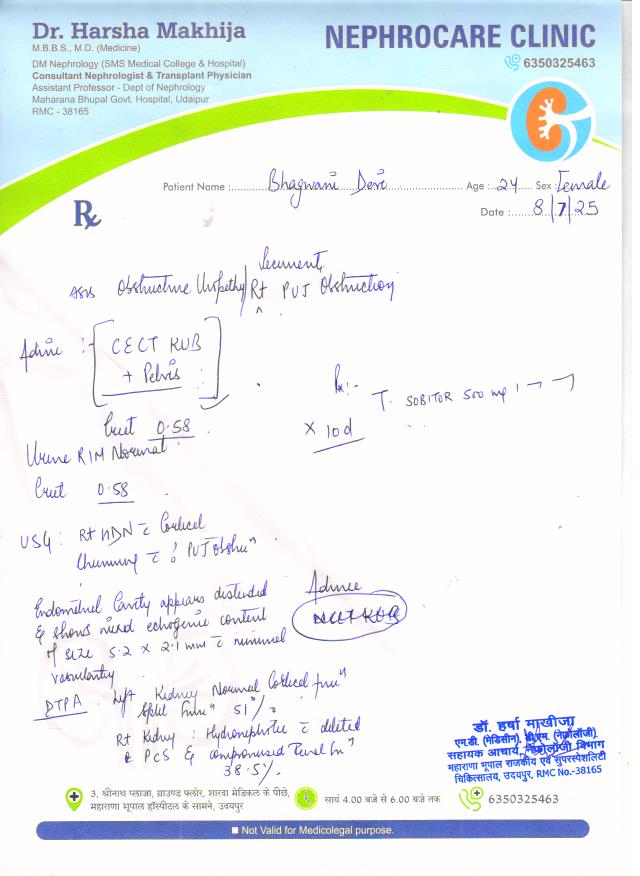 Dr. Harsha Makhija
M.B.B.S., M.D. (Medicine)
DM Nephrology (SMS Medical College & Hospital)
Consultant Nephrologist & Transplant Physician
Assistant Professor - Dept of Nephrology
Maharana Bhupal Govt. Hospital, Udaipur
RMC - 38165
NEPHROCARE CLINIC
6350325463
Patient Name : Bhagwani Devi Age : 24 Sex : Female
Rx
Date : 8/7/25
Obstructive Uropathy / Rt PUJ Obstruction
Advice :- CECT KUB
+ Pelvis
Creat 0.58
Rx :- T. SOBITOR 500 mg 1
x 10d
Urine R/M Normal
Creat 0.58
USG : Rt HDN c̄ Cortical
thinning c̄ ? PUJ obstrun
Endometrial Cavity appears distended
& shows mixed echogenic content
of size 5.2 x 2.1 mm c̄ minimal
vascularity
Advice
NCCT KUB
DTPA Left Kidney Normal Cortical fun
Split fun 51%
Rt Kidney : Hydronephrotic c̄ dilated
PCS & compromised Renal fn
38.5%
डॉ. हर्षा माखीजा
एम.डी. (मेडिसीन), डी.एम. (नेफ्रोलॉजी)
सहायक आचार्य, नेफ्रोलॉजी विभाग
महाराणा भूपाल राजकीय एवं सुपरस्पेशलिटी
चिकित्सालय, उदयपुर, RMC No.-38165
3, श्रीनाथ प्लाजा, ग्राउण्ड फ्लोर, शारदा मेडिकल के पीछे,
महाराणा भूपाल हॉस्पीटल के सामने, उदयपुर
सायं 4.00 बजे से 6.00 बजे तक
6350325463
Not Valid for Medicolegal purpose.